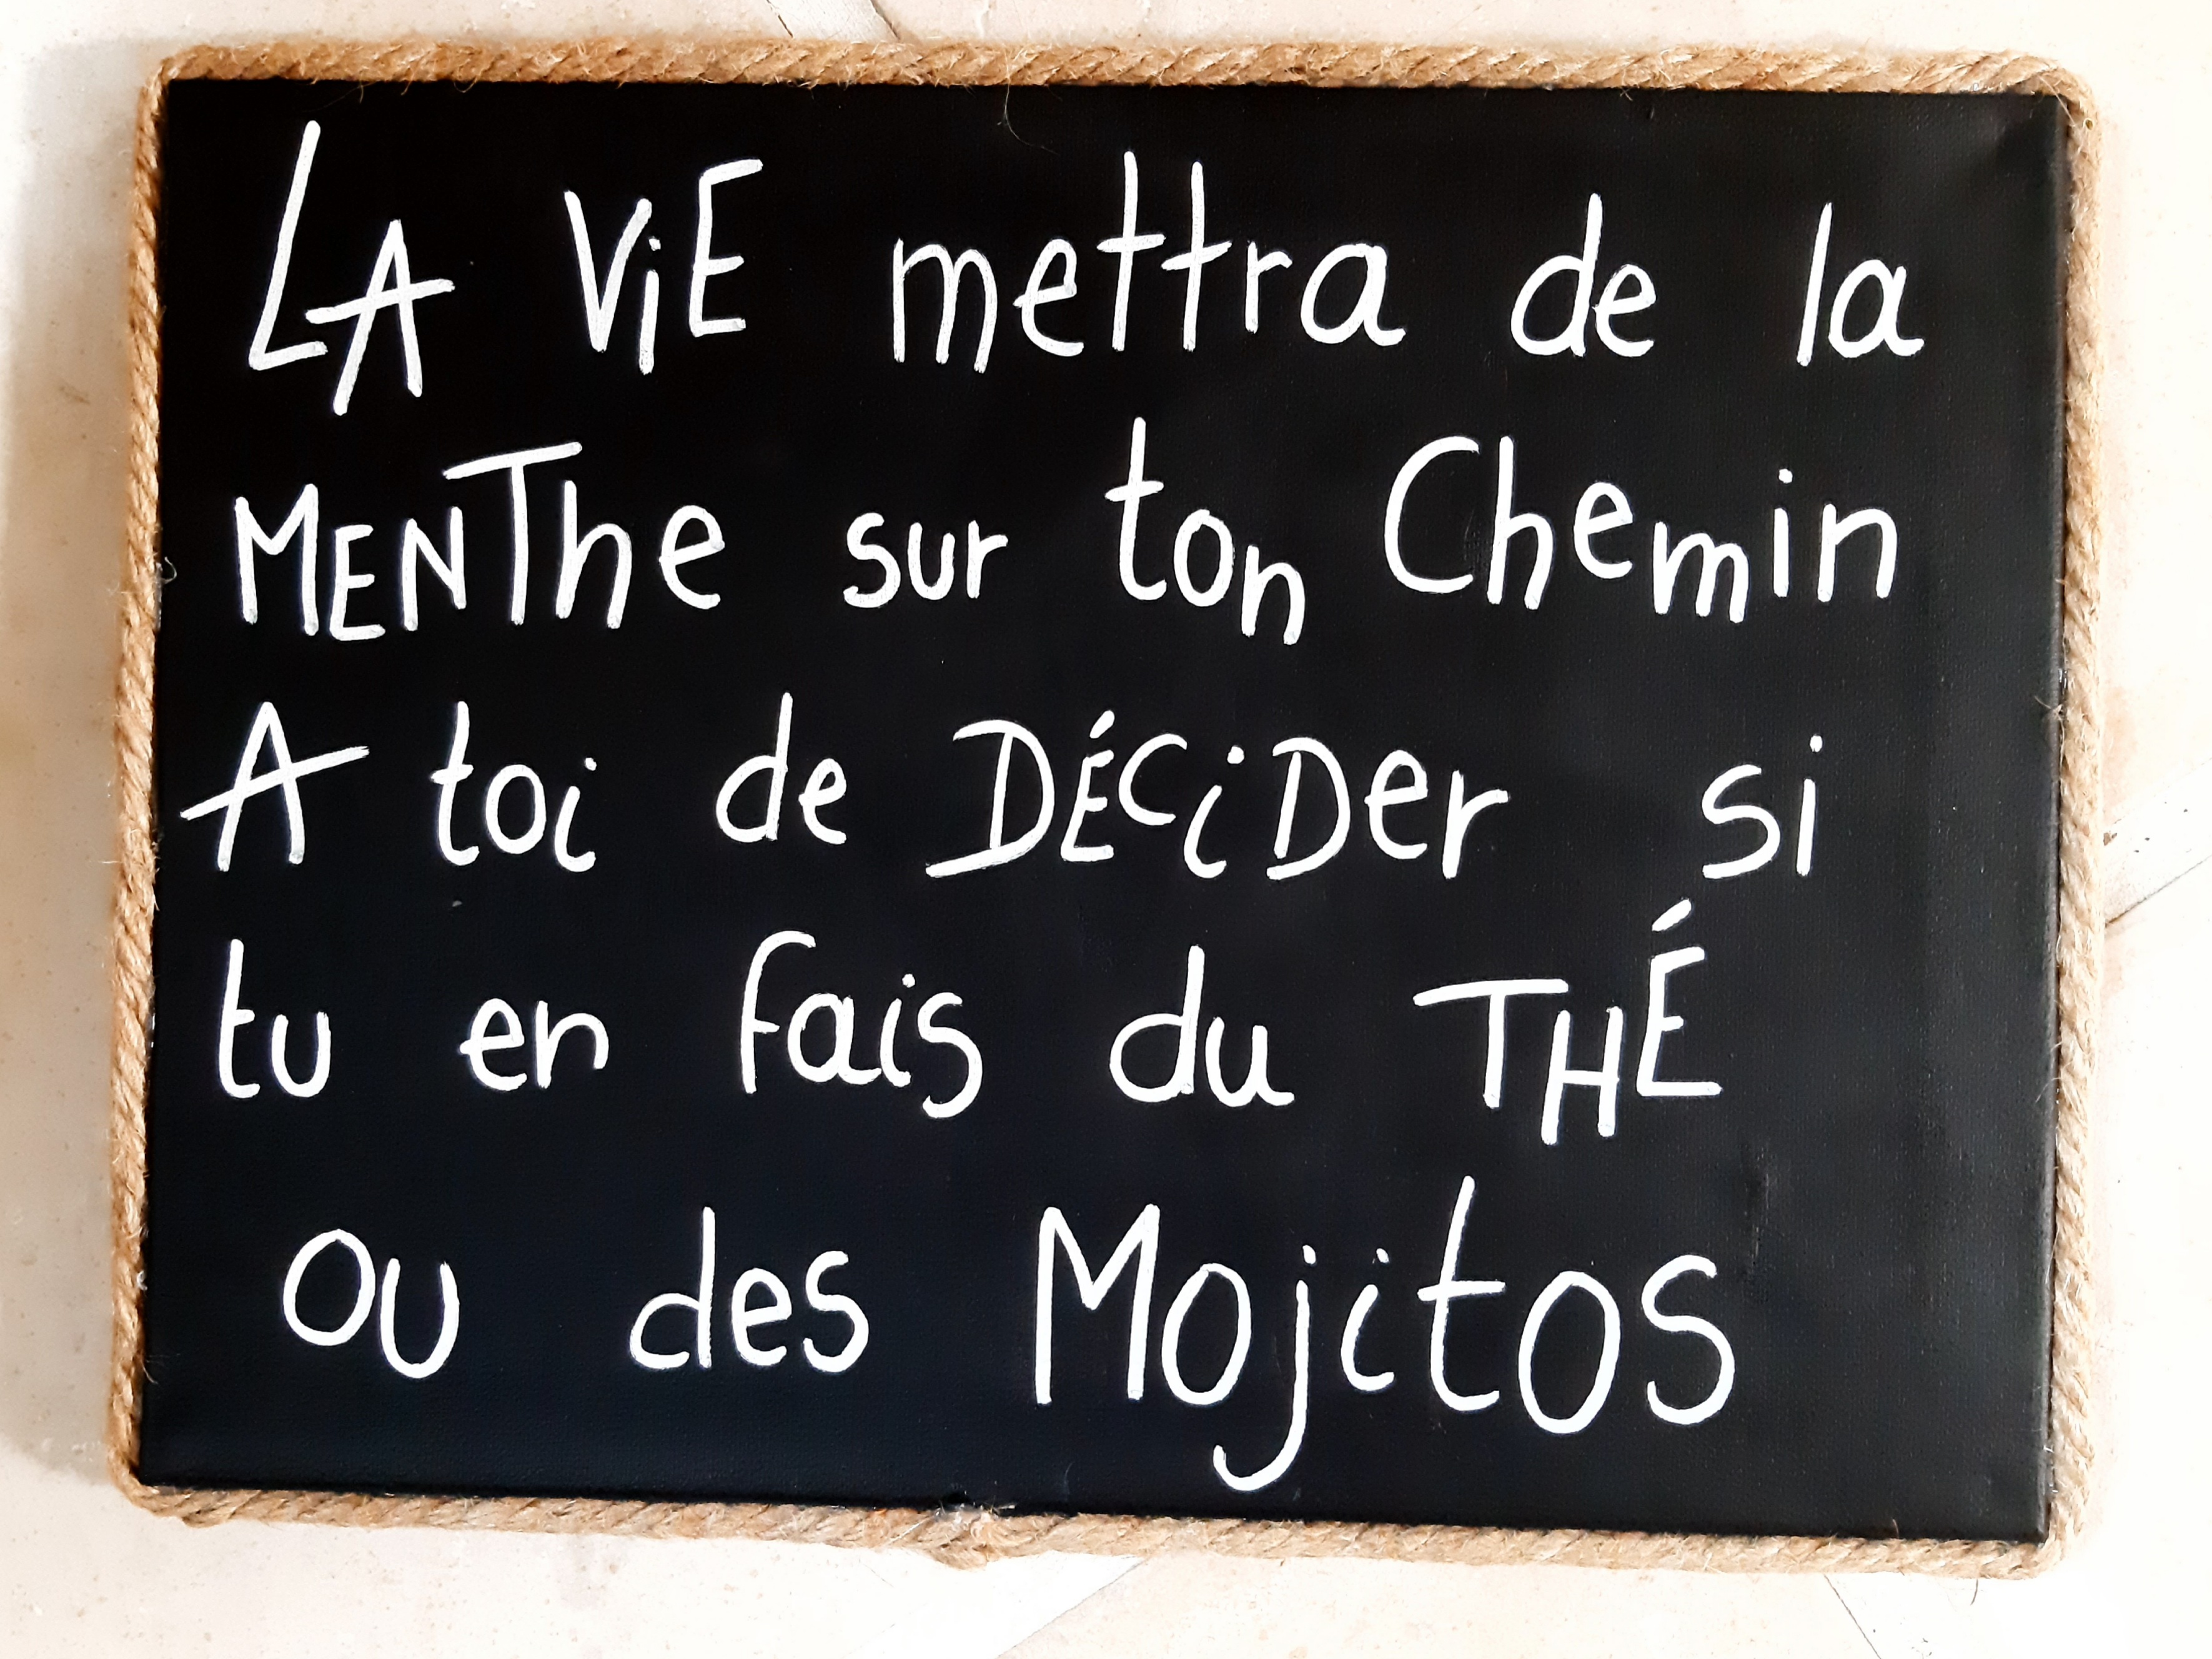 LA ViE mettra de la
MENThe sur ton Chemin
A toi de DÉCiDer si
tu en fais du THÉ
OU des Mojitos